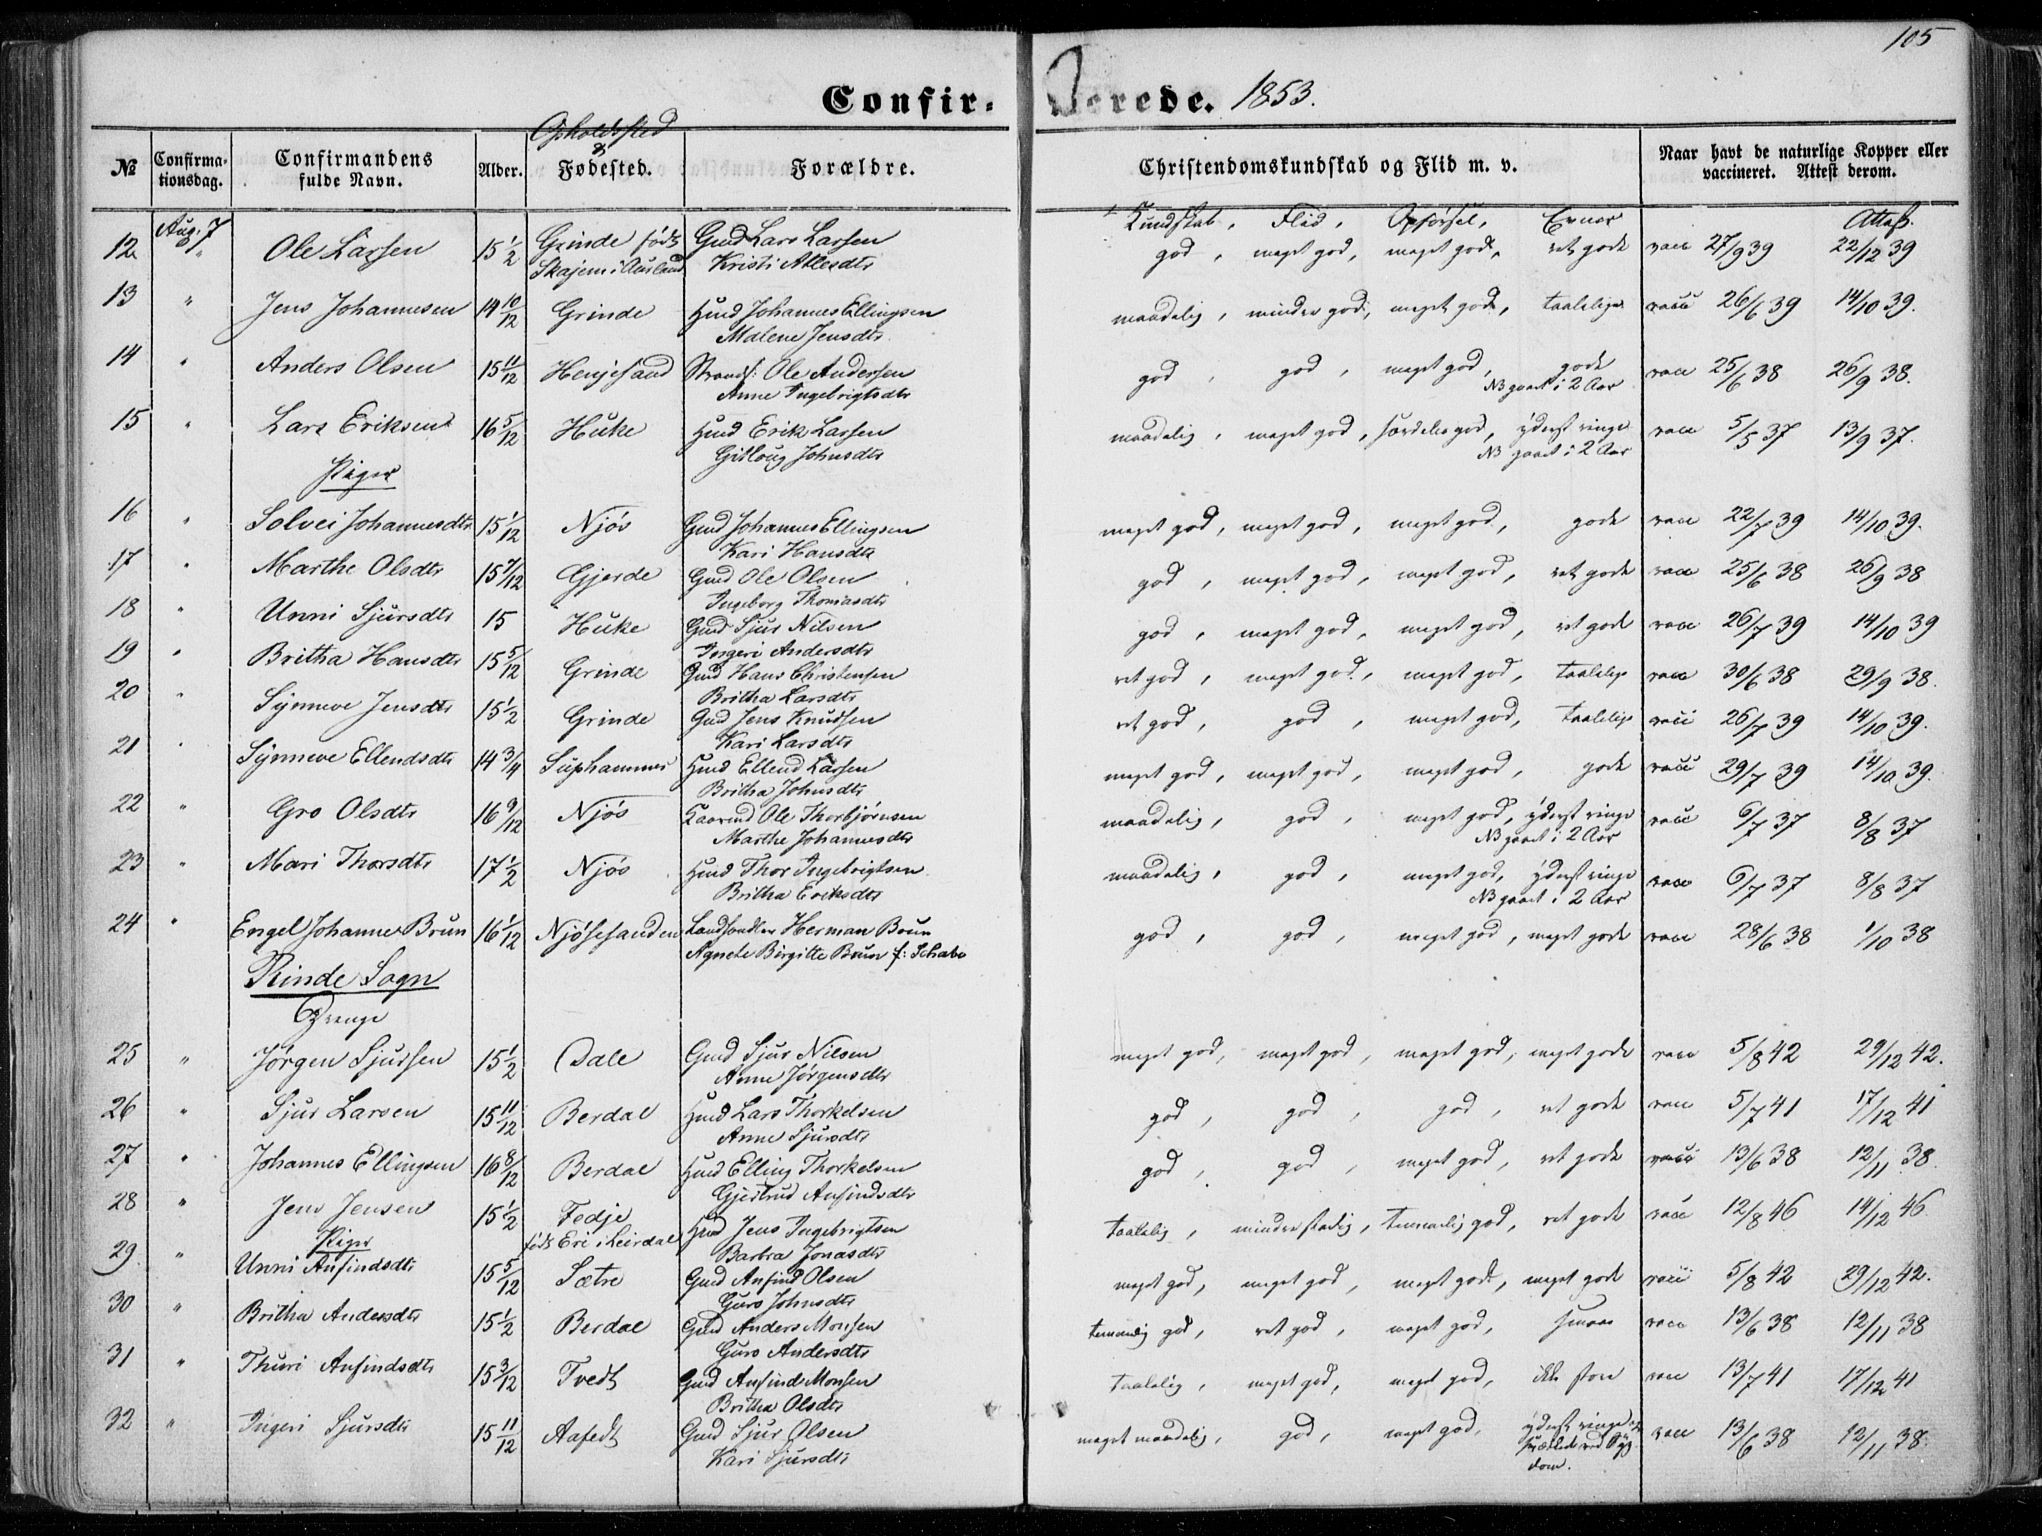 105
Confir- merede. 1853.
№ Confirma-tionsdag. Confirmandens fulde Navn. Alder. Opholdssted & Fødested. Forældre. Christendomskundskab og Flid m. v. Naar havt de naturlige Kopper eller vaccineret. Attest derom.
Aug. 7 Kundskab, Flid, Opførsel, Evner Attest.
12 " Ole Larsen 15 1/2 Grinde født Gmd Lars Larsen god, meget god, meget god, ret gode vacc 27/9 39 22/12 39
Skajem i Aurland Kristi Atlesdtr
13 " Jens Johannesen 14 10/12 Grinde Hmd Johannes Ellingsen maadelig, mindre god, meget god, taalelige vacc 26/6 39 14/10 39.
Malene Jensdtr
14 " Anders Olsen 15 11/12 Henjesand Strands. Ole Andersen god, god, meget god, gode vacc 25/6 38 26/9 38.
Anne Ingebrigtsdtr NB gaaet i 2 Aar
15 " Lars Eriksen 16 5/12 Huke Hmd Erik Larsen maadelig, meget god, særdeles god, yderst ringe vacc 5/5 37 13/9 37.
Gitloug Johnsdtr NB gaaet i 2 Aar
Piger
16 " Solvei Johannesdtr 15 1/12 Njøs Gmd Johannes Ellingsen meget god, meget god, meget god, gode vacc 22/7 39 14/10 39.
Kari Hansdtr
17 " Marthe Olsdtr 15 7/12 Gjerde Gmd Ole Olsen god, meget god, meget god, ret gode vacc 25/6 38 26/9 38
Ingeborg Thomasdtr
18 " Unni Sjursdtr 15 Huke Gmd Sjur Nilsen god, meget god, meget god, ret gode vacc 26/7 39 14/10 39
Ingeri Andersdtr
19 " Britha Hansdtr 15 5/12 Grinde Gmd Hans Christensen ret god, meget god, meget god, taalelige vacc 30/6 38 29/9 38.
Britha Larsdtr
20 " Synneve Jensdtr 15 1/2 Grinde Gmd Jens Knudsen ret god, god, meget god, taalelige vacc 26/7 39 14/10 39.
Kari Larsdtr
21 " Synneve Ellendsdtr 14 3/4 Suphammer Hmd Ellend Larsen meget god, meget god, meget god, gode vacc 29/7 39 14/10 39.
Britha Johnsdtr
22 " Gro Olsdtr 16 9/12 Njøs Kaarmd Ole Thorbjørnsen maadelig, god, meget god, yderst ringe vacc 6/7 37 8/8 37
Marthe Johannesdtr NB gaaet i 2 Aar
23 " Mari Thorsdtr 17 1/2 Njøs Hmd Thor Ingebrigtsen maadelig, god, meget god, yderst ringe vacc 6/7 37 8/8 37
Britha Eriksdtr NB gaaet i 2 Aar
24 " Engel Johanne Brun 16 1/12 Njøsesanden Landhandler Herman Brun god, god, meget god, meget gode vacc 28/6 38 1/10 38
Agnete Birgitte Brun f: Schabo
Rinde Sogn
Drenge
25 " Jørgen Sjursen 15 1/2 Dale Gmd Sjur Nilsen meget god, meget god, meget god, meget gode vacc 5/8 42 29/12 42.
Anne Jørgensdtr
26 " Sjur Larsen 15 11/12 Berdal Hmd Lars Thorkelsen god, god, god, ret gode vacc 5/7 41 17/12 41
Anne Sjursdtr
27 " Johannes Ellingsen 16 8/12 Berdal Hmd Elling Thorkelsen god, god, meget god, ret gode vacc 13/6 38 12/11 38.
Gjertrud Anfindsdtr
28 " Jens Jensen 15 1/2 Fedje Hmd Jens Ingebrigtsen taalelig, mindre stadig, temmelig god, ret gode vacc 12/8 46 14/12 46
Piger født Eri i Leirdal Barbra Jonasdtr
29. " Unni Anfindsdtr 15 5/12 Sætre Gmd Anfind Olsen meget god, meget god, meget god, meget gode vacc 5/8 42 29/12 42.
Guro Johnsdtr
30 " Britha Andersdtr 15 1/2 Berdal Gmd Anders Monsen temmelig god, ret god, meget god, smaae vacc 13/6 38 12/11 38
Guro Andersdtr
31 " Thuri Anfindsdtr 15 3/12 Tvedt Gmd Anfind Monsen taalelig, meget god, meget god, ikke store vacc 13/7 41 17/12 41
Britha Olsdtr
32 " Ingeri Sjursdtr 15 11/12 Aafedt Gmd Sjur Olsen meget maadelig, god, meget god, yderst ringe og vacc 13/6 38 12/11 38.
Kari Sjursdtr svækkede ved Syg
dom.